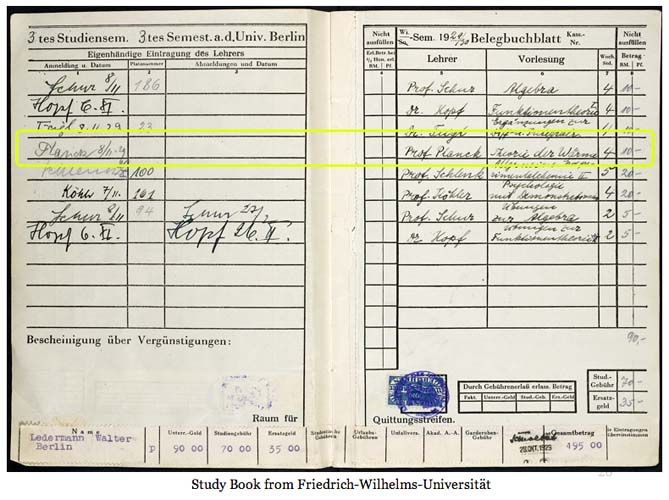 3tes Studiensem. 3tes Semest. a.d. Univ. Berlin
Eigenhändige Eintragung des Lehrers
Anmeldung u. Datum Platznummer Abmeldungen und Datum
1 2 3
Schur 8/11 186
Hopf 6.XI.
Feigl 8.11.29 23
Planck 8/11.29
100
Köhler 7/11. 161
Schur 8/11 94 Schur 27/2
Hopf 6.XI. Hopf 26.II.
Bescheinigung über Vergünstigungen:
Raum für
Name
Ledermann Walter
Berlin
P
Unterr.-Geld
90 00
Studiengebühr
70 00
Ersatzgeld
35 00
Studentische Gebühren
Nicht ausfüllen
Wi.
So.-Sem. 1929/30 Belegbuchblatt Kass.-Nr.
Nicht ausfüllen
Lehrer Vorlesung Woch. Std. Betrag
RM. Pf.
Prof. Schur Algebra 4 20-
Dr. Hopf Funktionentheorie I 4 20-
Ergänzungen zur
Dr. Feigl Diff. u. Integralr.
Prof Planck Teorie der Wärme 4 20-
Prof. Schlenk 5 20-
Psychologie
Prof. Köhler mit Demonstrationen 4 20-
Übungen
Prof. Schur zur Algebra 2 5-
Übungen zur
Dr. Hopf Funktionentheorie 2 5-
90,-
Durch Gebührenerlaß erlass. Betrag
Fakt. Unterr.-Geld Stud.-Geb. Ers.-Geld
Stud.-Gebühr 70-
Ersatzgeld 35-
Quittungsstreifen.
Urlaubs-Gebühren Unfallvers. Akad. A.-A. Garderoben-Gebühr Gesamtbetrag
28.OKT.1929 495 00
20
Study Book from Friedrich-Wilhelms-Universität